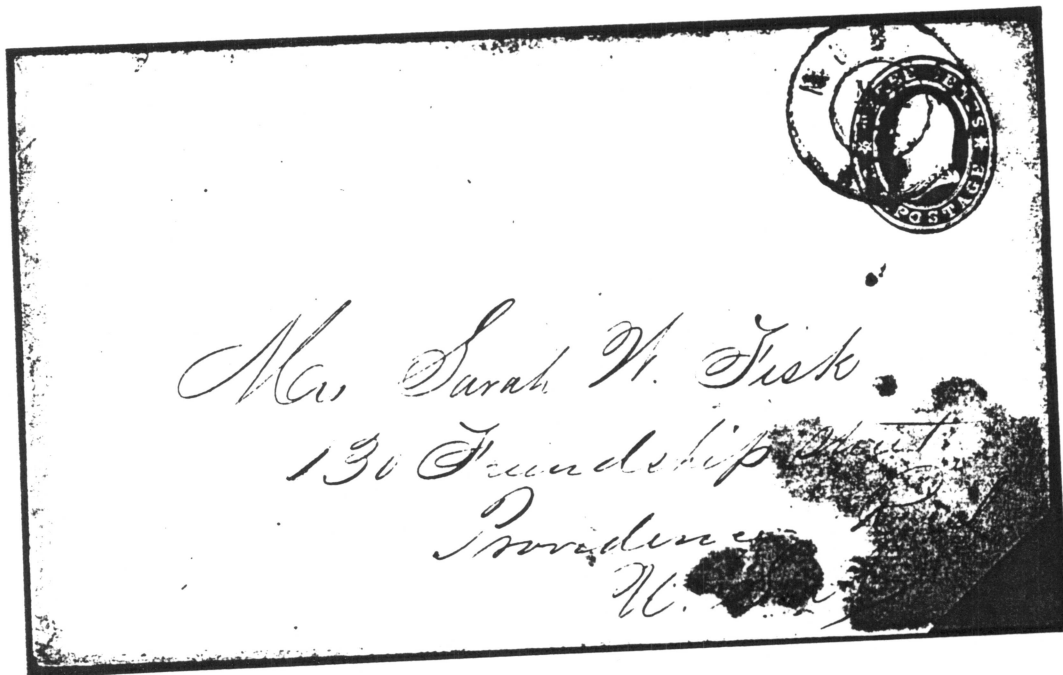 POSTAGE
Mrs Sarah W. Fisk
130 Friendship Street
Providence
R.I.